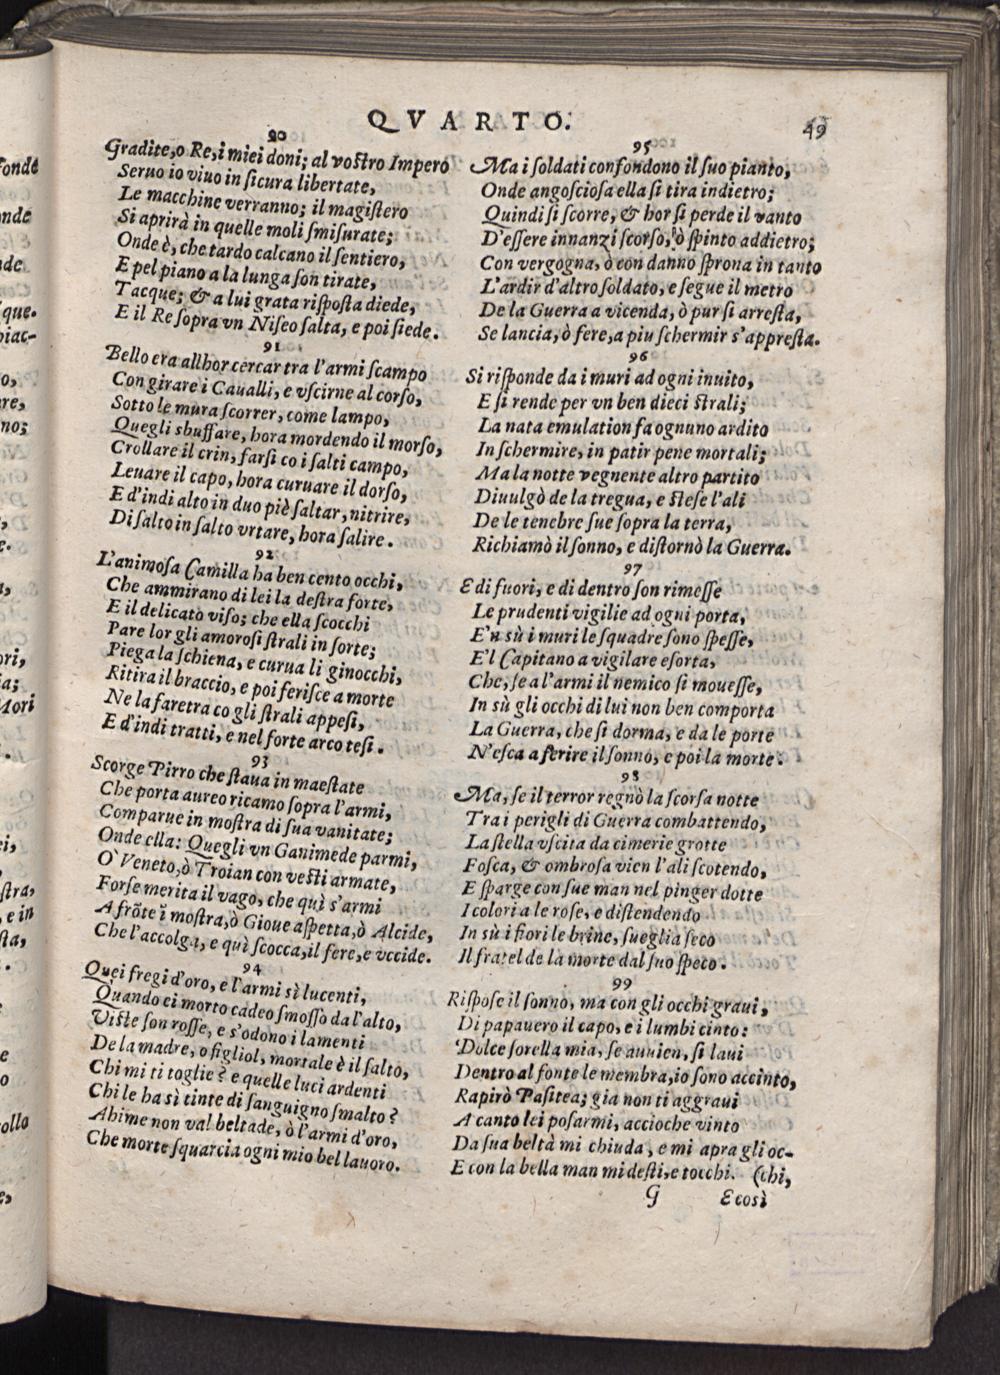 QVARTO.
49
90
Gradite, o Re, i miei doni; al vostro Impero
Seruo io viuo in sicura libertate,
Le macchine verranno; il magistero
Si aprirà in quelle moli smisurate;
Onde è, che tardo calcano il sentiero,
E pel piano a la lunga son tirate,
Tacque; & a lui grata risposta diede,
E il Re sopra vn Niseo salta, e poi siede.
91
Bello era allhor cercar tra l'armi scampo
Con girare i Caualli, e vscirne al corso,
Sotto le mura scorrer, come lampo,
Quegli sbuffare, hora mordendo il morso,
Crollare il crin, farsi co i salti campo,
Leuare il capo, hora curuare il dorso,
E d'indi alto in duo piè saltar, nitrire,
Di salto in salto vrtare, hora salire.
92
L'animosa Camilla ha ben cento occhi,
Che ammirano di lei la destra forte,
E il delicato viso; che ella scocchi
Pare lor gli amorosi strali in sorte;
Piega la schiena, e curua li ginocchi,
Ritira il braccio, e poi ferisce a morte
Ne la faretra co gli strali appesi,
E d'indi tratti, e nel forte arco tesi.
93
Scorge Pirro che staua in maestate
Che porta aureo ricamo sopra l'armi,
Comparue in mostra di sua vanitate;
Onde ella: Quegli vn Ganimede parmi,
O' Veneto, ò Troian con vesti armate,
Forse merita il vago, che quì s'armi
A frõte ĩ mostra, ò Gioue aspetta, ò Alcide,
Che l'accolga, e quì scocca, il fere, e vccide.
94
Quei fregi d'oro, e l'armi sì lucenti,
Quando ei morto cadeo smosso da l'alto,
Viste son rosse, e s'odono i lamenti
De la madre, o figliol, mortale è il salto,
Chi mi ti toglie? e quelle luci ardenti
Chi le ha sì tinte di sanguigno smalto?
Ahime non val beltade, ò l'armi d'oro,
Che morte squarcia ogni mio bel lauoro.
95
Ma i soldati confondono il suo pianto,
Onde angosciosa ella si tira indietro;
Quindi si scorre, & hor si perde il vanto
D'essere innanzi scorso, ò spinto addietro;
Con vergogna, ò con danno sprona in tanto
L'ardir d'altro soldato, e segue il metro
De la Guerra a vicenda, ò pur si arresta,
Se lancia, ò fere, a piu schermir s'appresta.
96
Si risponde da i muri ad ogni inuito,
E si rende per vn ben dieci strali;
La nata emulation fa ognuno ardito
In schermire, in patir pene mortali;
Ma la notte vegnente altro partito
Diuulgò de la tregua, e stese l'ali
De le tenebre sue sopra la terra,
Richiamò il sonno, e distornò la Guerra.
97
E di fuori, e di dentro son rimesse
Le prudenti vigilie ad ogni porta,
E'n sù i muri le squadre sono spesse,
E'l Capitano a vigilare esorta,
Che, se a l'armi il nemico si mouesse,
In sù gli occhi di lui non ben comporta
La Guerra, che si dorma, e da le porte
N'esca a ferire il sonno, e poi la morte.
98
Ma, se il terror regnò la scorsa notte
Tra i perigli di Guerra combattendo,
La stella vscita da cimerie grotte
Fosca, & ombrosa vien l'ali scotendo,
E sparge con sue man nel pinger dotte
I colori a le rose, e distendendo
In sù i fiori le brine, sueglia seco
Il fratel de la morte dal suo speco.
99
Rispose il sonno, ma con gli occhi graui,
Di papauero il capo, e i lumbi cinto:
Dolce sorella mia, se auuien, si laui
Dentro al fonte le membra, io sono accinto,
Rapirò Pasitea; gia non ti aggraui
A canto lei posarmi, accioche vinto
Da sua beltà mi chiuda, e mi apra gli oc-
E con la bella man mi desti, e tocchi. (chi,
G
E così